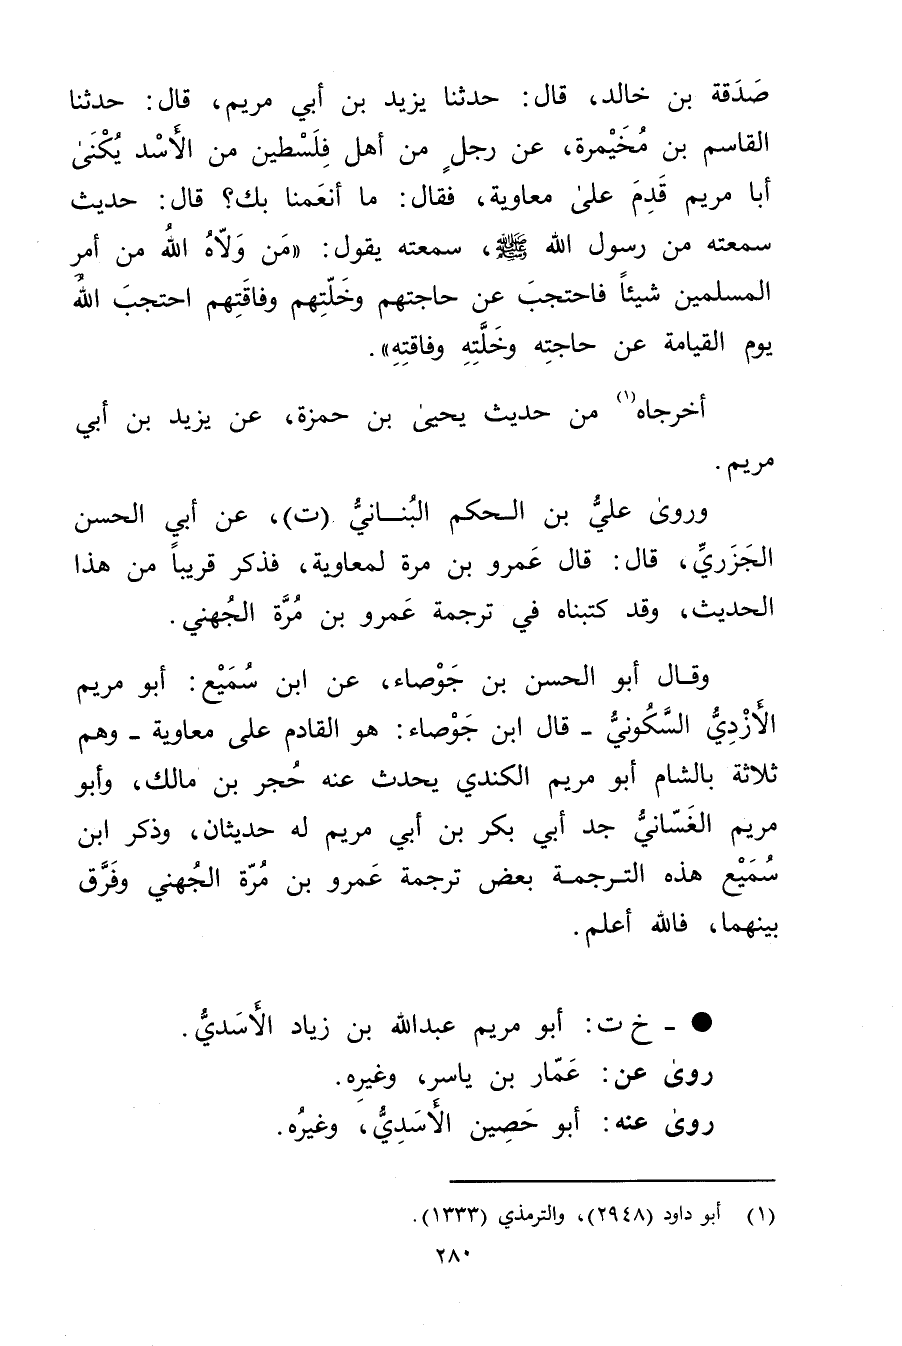 صَدَقة بن خالد، قال: حدثنا يزيد بن أبي مريم، قال: حدثنا
القاسم بن مُخَيْمرة، عن رجلٍ من أهل فِلَسْطين من الأَسْد يُكْنَىٰ
أبا مريم قَدِمَ علىٰ معاوية، فقال: ما أنعَمنا بك؟ قال: حديث
سمعته من رسول الله ﷺ، سمعته يقول: «مَن وَلاّهُ اللهُ من أمرِ
المسلمين شيئاً فاحتجبَ عن حاجتهم وخَلّتِهم وفاقَتِهم احتجبَ اللهُ
يوم القيامة عن حاجتِه وخَلَّتِهِ وفاقتِهِ».
أخرجاه(١) من حديث يحيىٰ بن حمزة، عن يزيد بن أبي
مريم.
وروىٰ عليُّ بن الحكم البُنانيُّ (ت)، عن أبي الحسن
الجَزَريِّ، قال: قال عَمرو بن مرة لمعاوية، فذكر قريباً من هذا
الحديث، وقد كتبناه في ترجمة عَمرو بن مُرَّة الجُهني.
وقال أبو الحسن بن جَوْصاء، عن ابن سُمَيْع: أبو مريم
الأَزْدِيُّ السَّكُونيُّ - قال ابن جَوْصاء: هو القادم على معاوية - وهم
ثلاثة بالشام أبو مريم الكندي يحدث عنه حُجر بن مالك، وأبو
مريم الغَسّانيُّ جد أبي بكر بن أبي مريم له حديثان، وذكر ابن
سُمَيْع هذه الترجمة بعض ترجمة عَمرو بن مُرّة الجُهني وفَرَّق
بينهما، فالله أعلم.
● - خ ت: أبو مريم عبدالله بن زياد الأَسَديُّ.
روىٰ عن: عَمّار بن ياسر، وغيرِه.
روىٰ عنه: أبو حَصِين الأَسَدِيُّ، وغيرُه.
(١) أبو داود (٢٩٤٨)، والترمذي (١٣٣٣).
٢٨٠